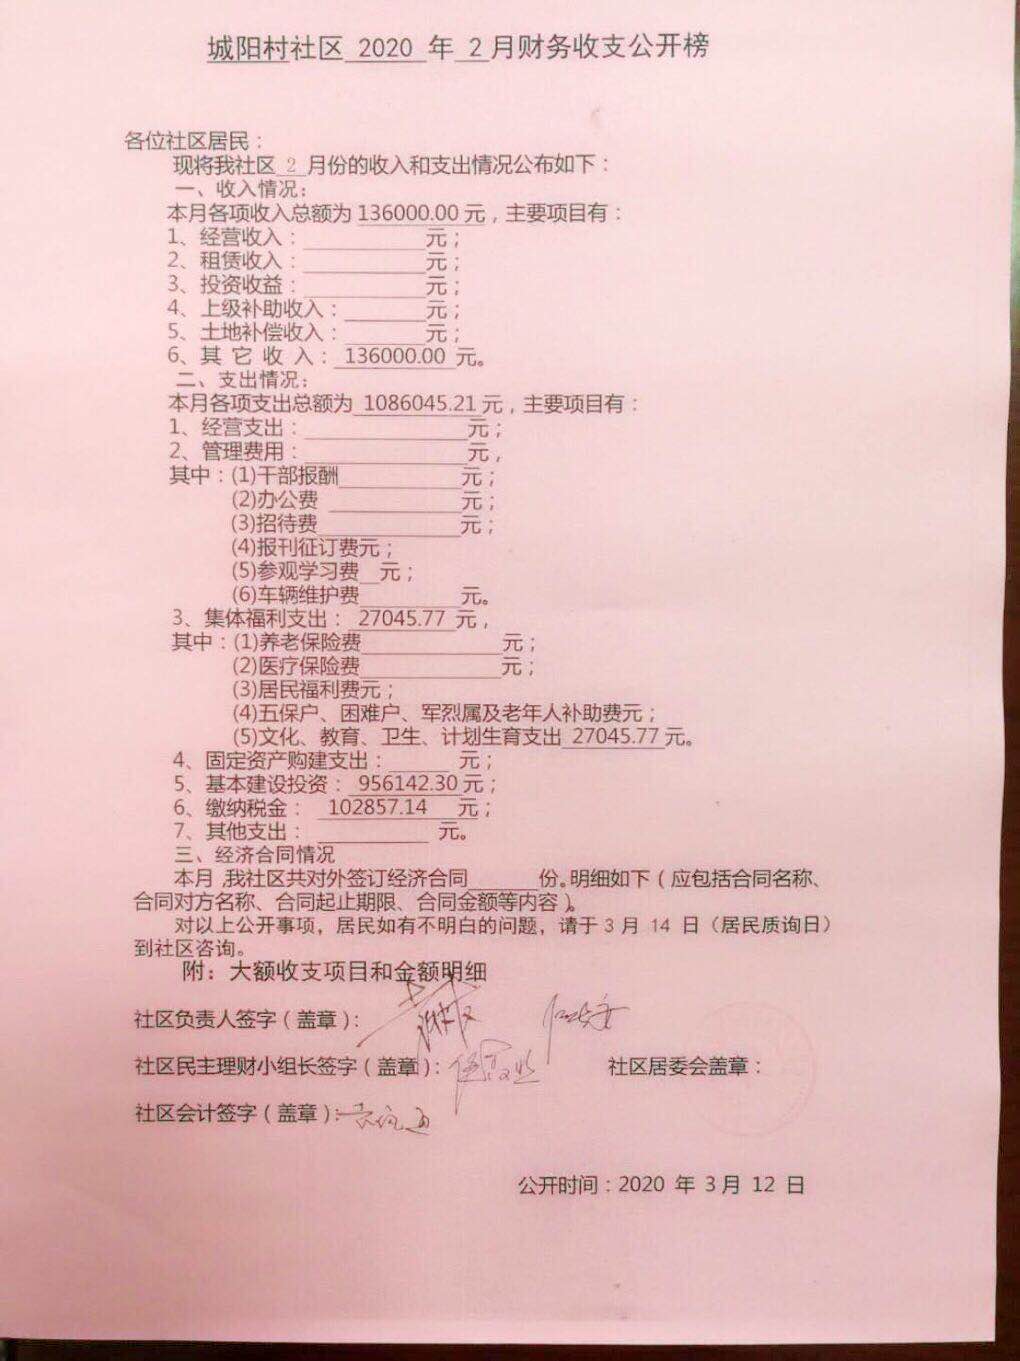 城阳村社区 2020 年 2 月财务收支公开榜
各位社区居民：
现将我社区 2 月份的收入和支出情况公布如下：
一、收入情况：
本月各项收入总额为 136000.00 元，主要项目有：
1、经营收入：____元；
2、租赁收入：____元；
3、投资收益：____元；
4、上级补助收入：____元；
5、土地补偿收入：____元；
6、其 它 收 入： 136000.00 元。
二、支出情况：
本月各项支出总额为 1086045.21 元，主要项目有：
1、经营支出：____元；
2、管理费用：____元，
其中：(1)干部报酬____元；
(2)办公费 ____元；
(3)招待费____元；
(4)报刊征订费元；
(5)参观学习费__元；
(6)车辆维护费____元。
3、集体福利支出： 27045.77 元，
其中：(1)养老保险费____元；
(2)医疗保险费____元；
(3)居民福利费元；
(4)五保户、困难户、军烈属及老年人补助费元；
(5)文化、教育、卫生、计划生育支出 27045.77 元。
4、固定资产购建支出：____元；
5、基本建设投资： 956142.30 元；
6、缴纳税金： 102857.14 元；
7、其他支出：____元。
三、经济合同情况
本月,我社区共对外签订经济合同____份。明细如下（应包括合同名称、
合同对方名称、合同起止期限、合同金额等内容）。
对以上公开事项，居民如有不明白的问题，请于 3 月 14 日（居民质询日）
到社区咨询。
附：大额收支项目和金额明细
社区负责人签字（盖章）：
社区民主理财小组长签字（盖章）： 社区居委会盖章：
社区会计签字（盖章）：
公开时间：2020 年 3 月 12 日